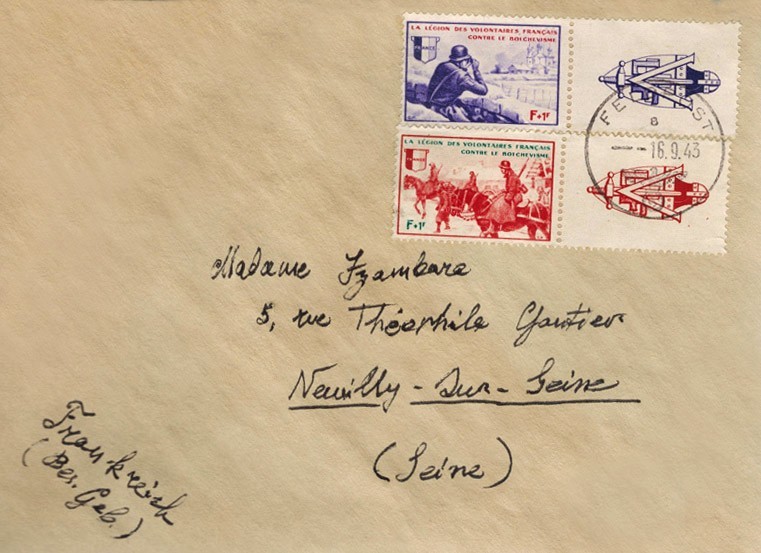 LA LÉGION DES VOLONTAIRES FRANÇAIS
CONTRE LE BOLCHEVISME
FRANCE
F+1F
LA LÉGION DES VOLONTAIRES FRANÇAIS
CONTRE LE BOLCHEVISME
F+1F
B
16.9.43
Madame Izambare
5, rue Théophile Gautier
Neuilly-sur-Seine
(Seine)
Frankreich
(Bes. Geb.)